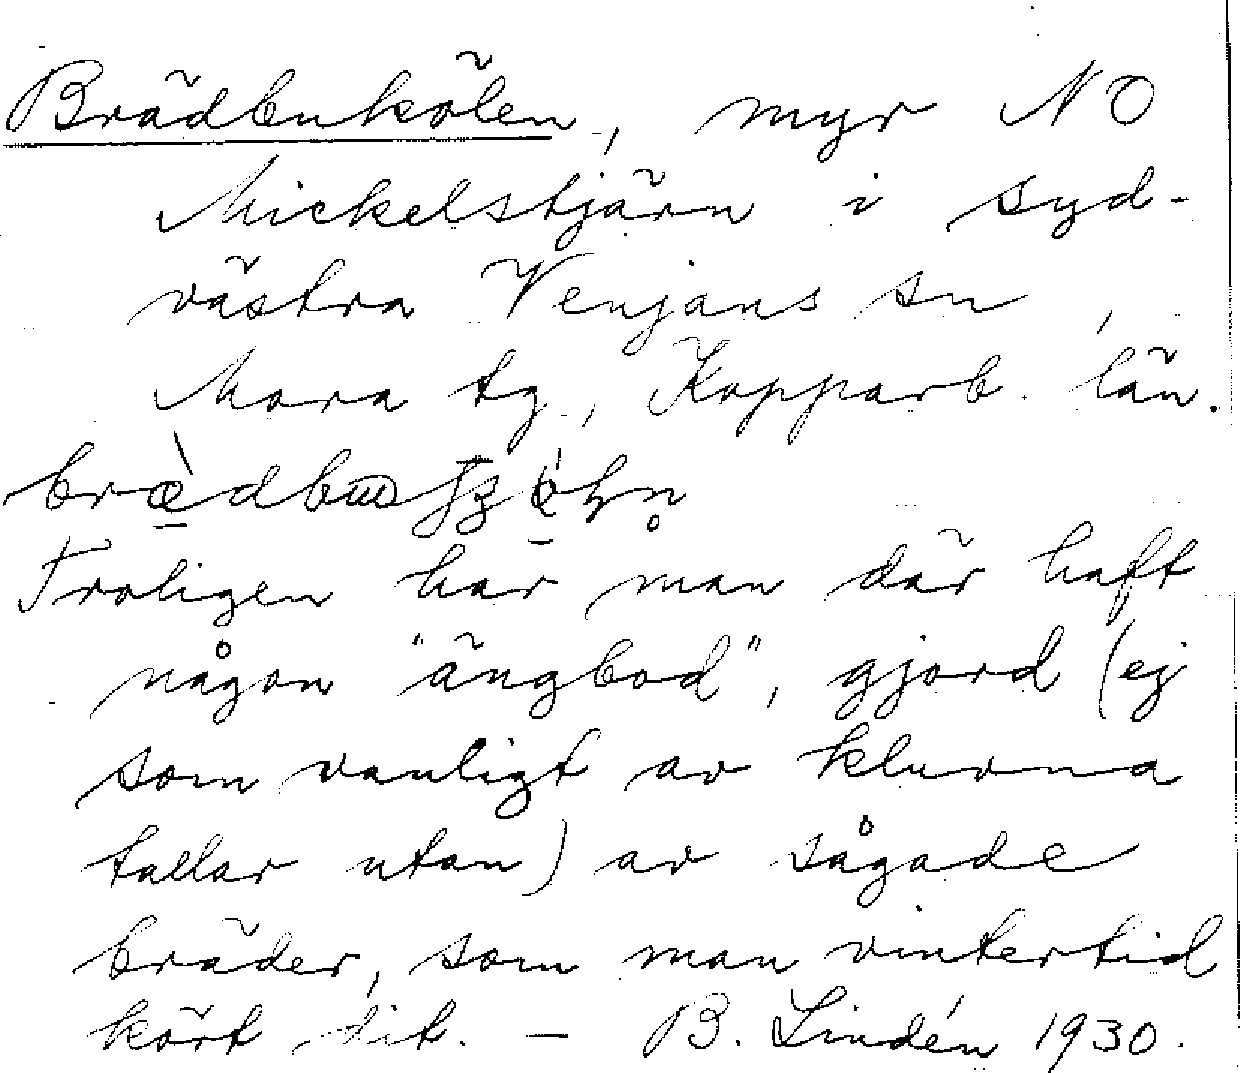 Brädbukölen, myr NO
Mickelstjärn i syd-
västra Venjans sn,
Mora tg, Kopparb. län.
Troligen har man där haft
någon "ängbod", gjord (ej
som vanligt av kluvna
tallar utan) av sågade
bräder, som man vintertid
kört dit. — B. Lindén 1930.